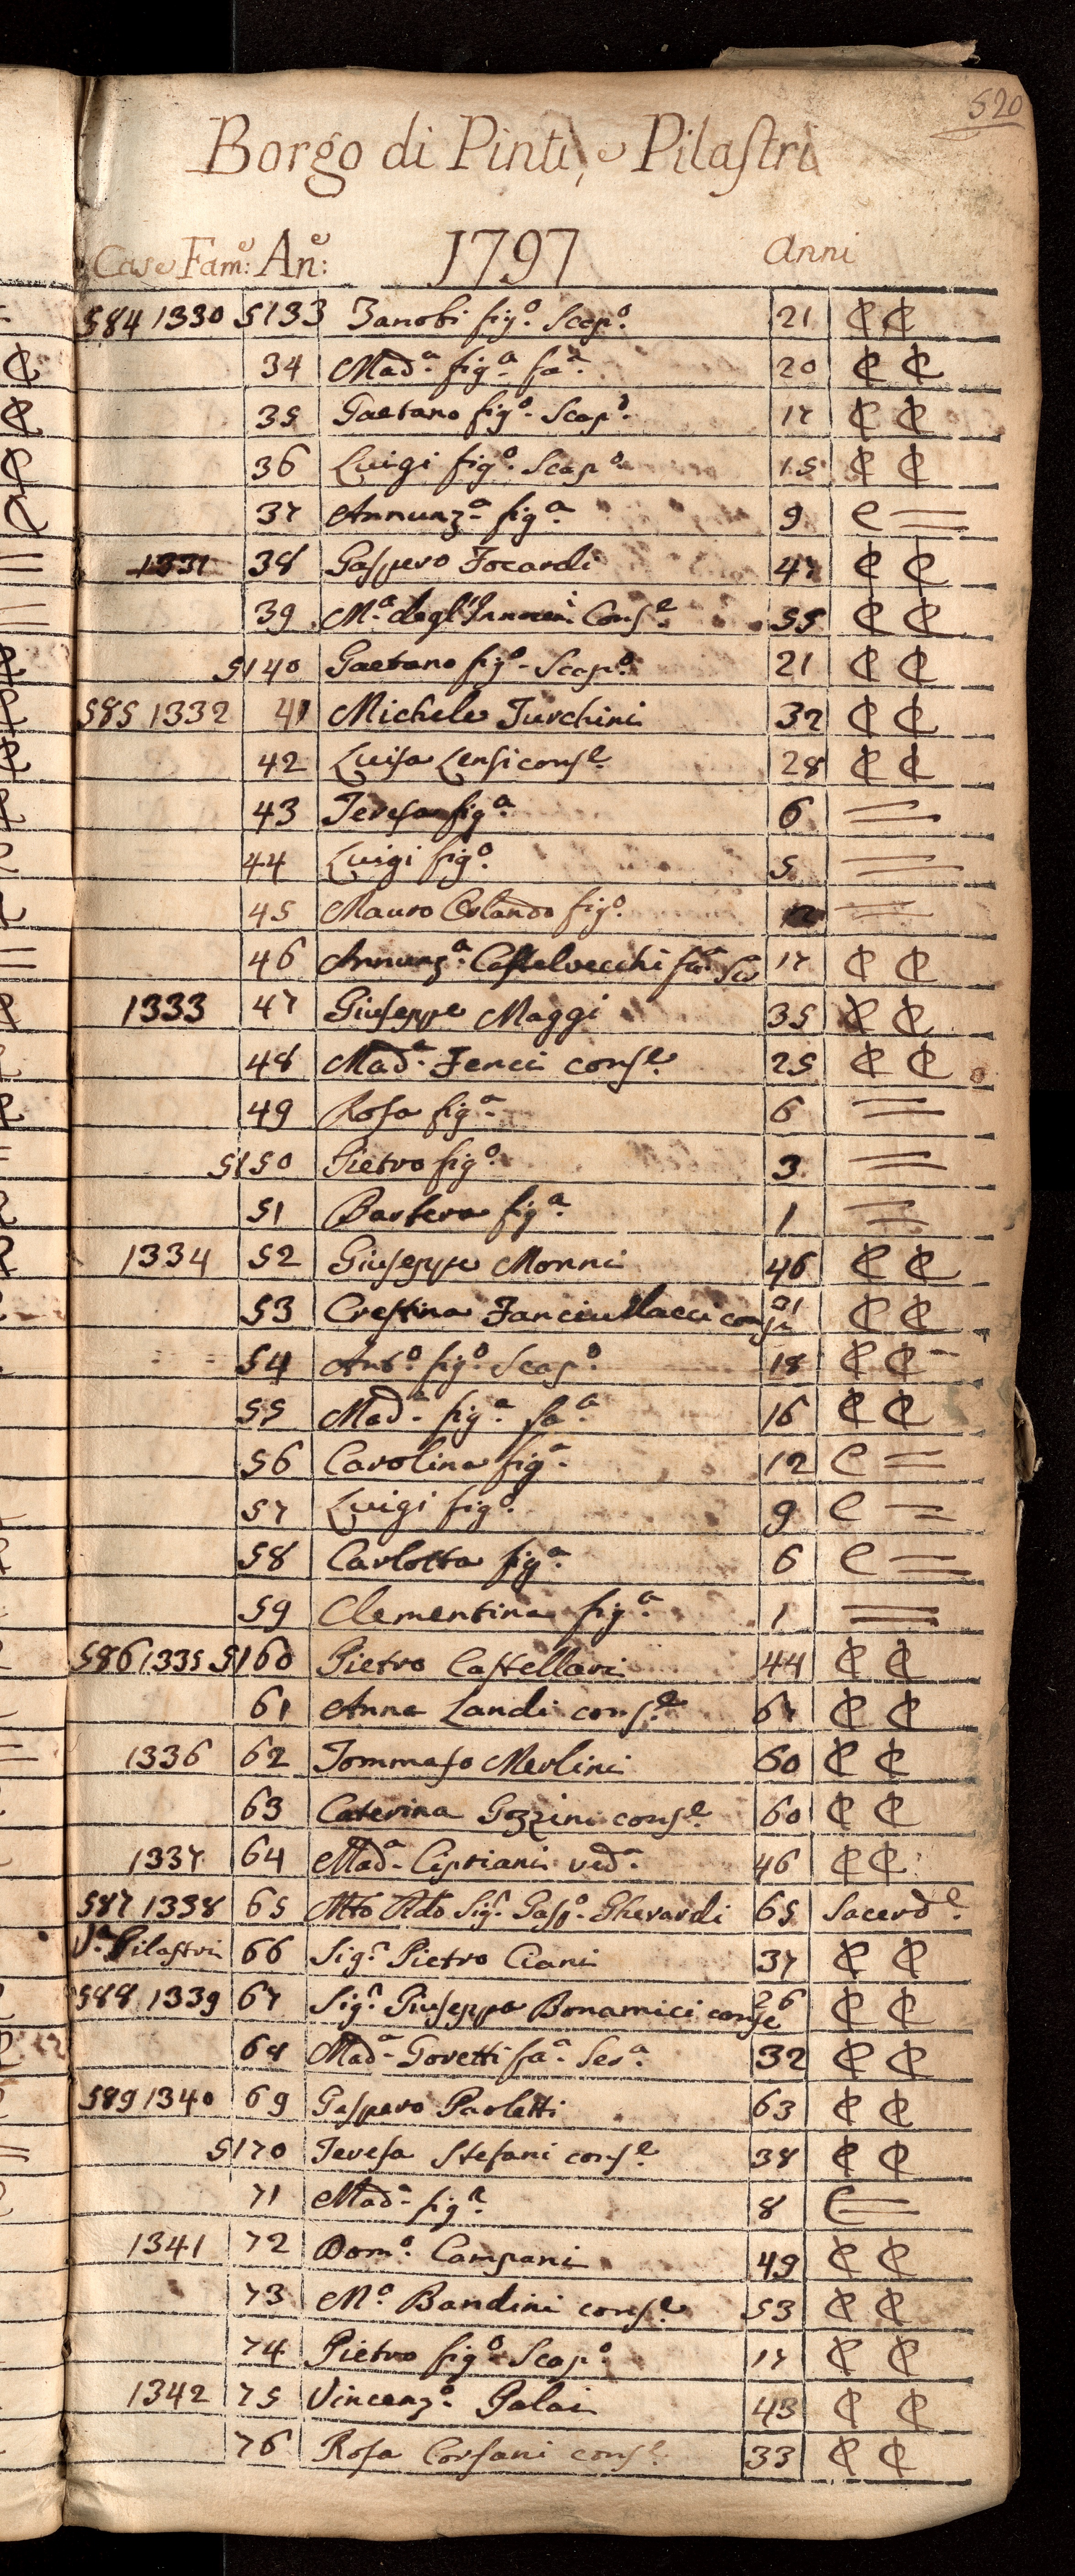 520
Borgo di Pinti, e Pilastri
Case Fam:e An:e 1797 Anni
584 1330 5133 Zanobi fig.o Scap.o 21 C C
34 Mad.a fig.a fa.a 20 C C
35 Gaetano fig.o Scap.o 17 C C
36 Luigi fig.o Scap.o 15 C C
37 Annunz.a fig.a 9 C =
1331 38 Gaspero Focardi 47 C C
39 M.a degl'Innocen.i Cons.e 55 C C
5140 Gaetano fig.o Scap.o 21 C C
585 1332 41 Michele Turchini 32 C C
42 Luisa Lensi cons.e 28 C C
43 Teresa fig.a 6 =
44 Luigi fig.o 5 =
45 Mauro Orlando fig.o =
46 Annunz.a Castelvecchi fa.a 17 C C
1333 47 Giuseppe Maggi 35 C C
48 Mad.a Fenci cons.e 25 C C
49 Rosa fig.a 6 =
5150 Pietro fig.o 3 =
51 Barbera fig.a 1 =
1334 52 Giuseppe Monni 46 C C
53 Crestina Fanciullacci cons.e C C
54 Ant.o fig.o Scap.o 18 C C
55 Mad.a fig.a fa.a 16 C C
56 Carolina fig.a 12 C =
57 Luigi fig.o 9 C =
58 Carlotta fig.a 6 C =
59 Clementina fig.a 1 =
586 1335 5160 Pietro Castellari 44 C C
61 Anna Landi cons.e 67 C C
1336 62 Tommaso Merlini 60 C C
63 Caterina Gozzini cons.e 60 C C
1337 64 Mad.a Cipriani ved.a 46 C C
587 1338 65 Mto Rdo Sig.r Gasp.o Gherardi 65 Sacerd.e
V.a Pilastri 66 Sig.r Pietro Ciani 37 C C
588 1339 67 Sig.ra Giuseppa Bonamici cons.e 26 C C
68 Mad.a Goretti fa.a Ser.a 32 C C
589 1340 69 Gaspero Paoletti 63 C C
5170 Teresa Stefani cons.e 38 C C
71 Mad.a fig.a 8 C =
1341 72 Dom.o Campani 49 C C
73 M.a Bandini cons.e 53 C C
74 Pietro fig.o Scap.o 17 C C
1342 75 Vincenz.o Galai 43 C C
76 Rosa Corsani cons.e 33 C C